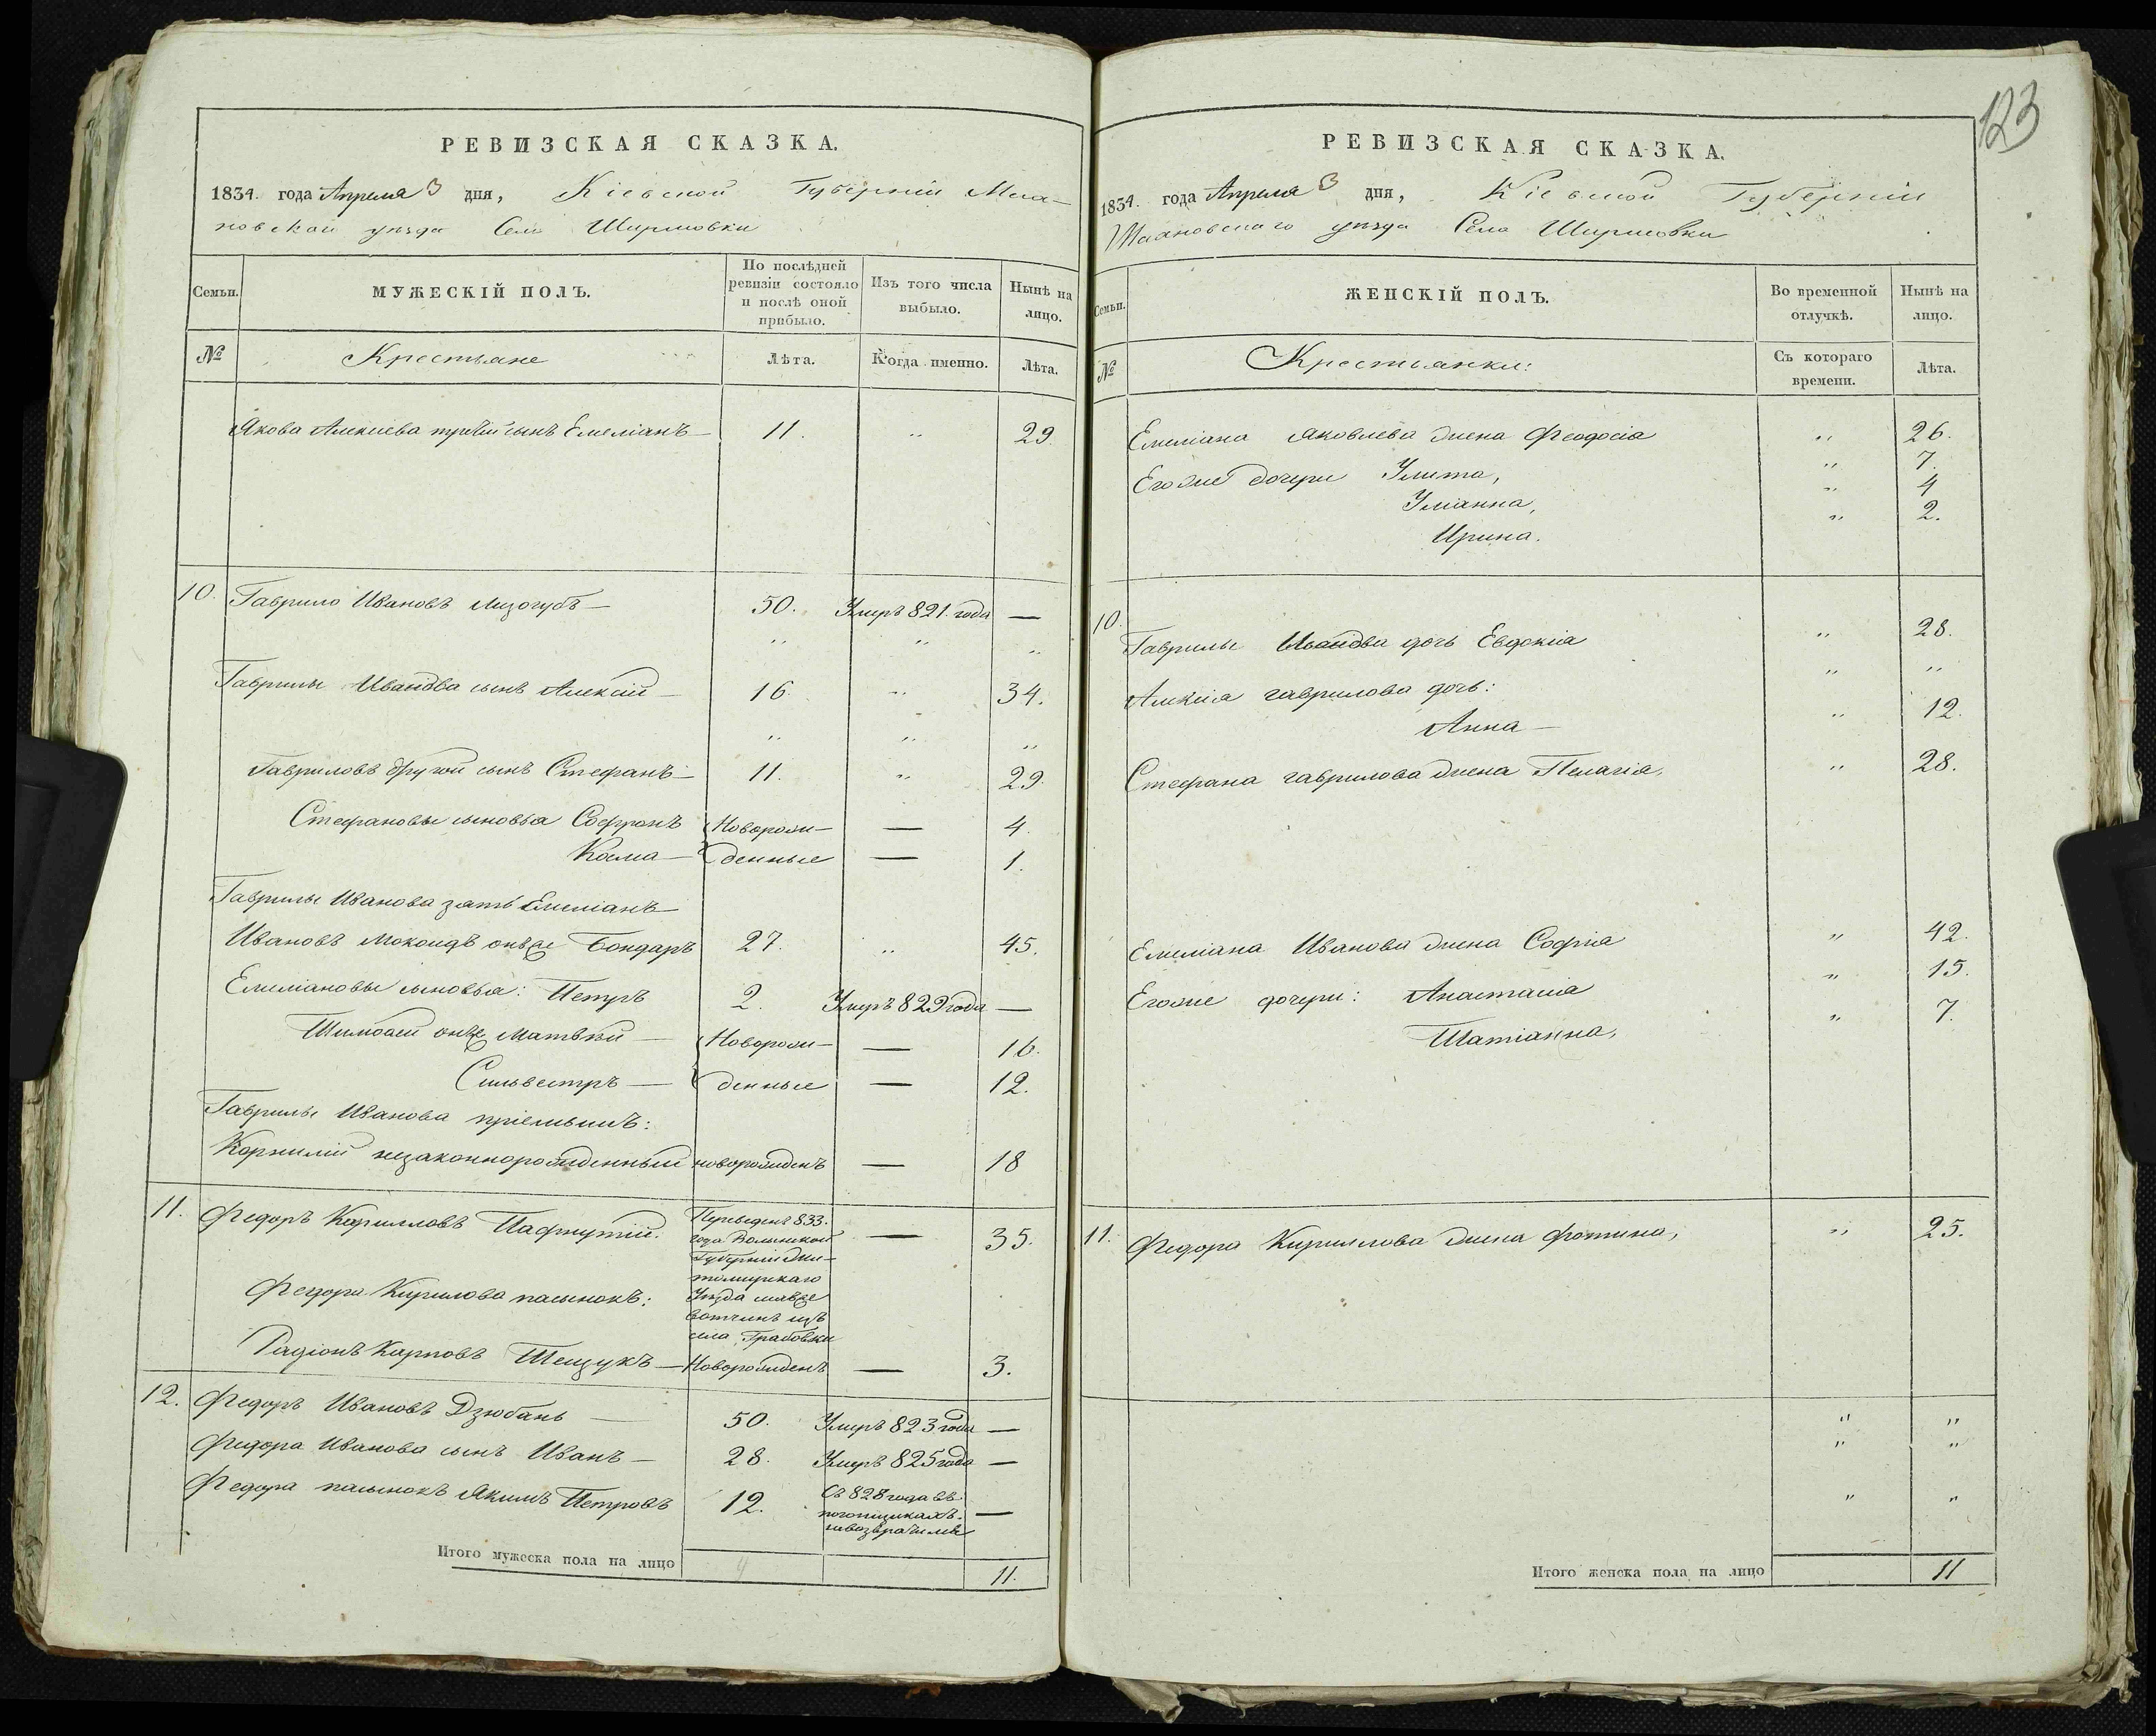 РЕВИЗСКАЯ СКАЗКА.
1834. года Апреля 3 дня, Кіевской Губерніи
уѣзда Села
Семьи.
МУЖЕСКІЙ ПОЛЪ.
По послѣдней ревизіи состояло и послѣ оной прибыло.
Изъ того числа выбыло.
Нынѣ на лицо.
№ Крестьяне Лѣта. Когда именно. Лѣта.
Якова Алексіева третій сынъ Емеліанъ — 11. „ 29.
10. Гаврило Ивановъ Лизогубъ — 50. Умръ 821. года —
„ „ „
Гаврилы Иванова сынъ Алексій — 16. „ 34.
„ „ „
Гавриловъ другой сынъ Стефанъ — 11. „ 29.
Стефановы сыновья Софронъ Новорож- — 4.
Косма — денные — 1.
Гаврилы Иванова зять Емеліанъ
Ивановъ онже Бондаръ 27. „ 45.
Емеліановы сыновья: Петръ 2. Умръ 829 года —
онже Матвѣй — Новорож- — 16.
Сильвестръ — денные — 12.
Гаврилы Иванова пріемышъ:
Корнилій незаконнорожденный новорожденъ — 18
11. Федоръ Кириловъ Пафнутій. Переведенъ 833. — 35.
года Волынской
Губерніи Жи-
томирскаго
Федора Кирилова пасынокъ: Уѣзда
села Грабовки
Радіонъ Карповъ — Новорожденъ — 3.
12. Федоръ Ивановъ Дзюбань — 50. Умръ 823 года —
Федора Иванова сынъ Иванъ — 28. Умръ 825 года —
Федора пасынокъ Якимъ Петровъ 12. Съ 828 года въ —
погонщикахъ.
Итого мужеска пола на лицо 11.
123
РЕВИЗСКАЯ СКАЗКА.
1834. года Апреля 3 дня, Кіевской Губерніи
уѣзда Села
Семьи.
ЖЕНСКІЙ ПОЛЪ.
Во временной отлучкѣ.
Нынѣ на лицо.
№ Крестьянки: Съ котораго времени. Лѣта.
Емеліана Яковлева жена Феодосія „ 26.
Егоже дочери Улита, „ 7.
Уліанна, „ 4
Ирина. „ 2.
10. Гаврилы Иванова дочь Евдокія „ 28.
„ „
Алексія Гаврилова дочь:
Анна — „ 12.
Стефана Гаврилова жена Пелагія, „ 28.
Емеліана Иванова жена Софія „ 42.
Егоже дочери: Анастасія „ 15.
Татіанна, „ 7.
11. Федора Кирилова жена Фотина, „ 25.
„ „
„ „
„ „
Итого женска пола на лицо 11